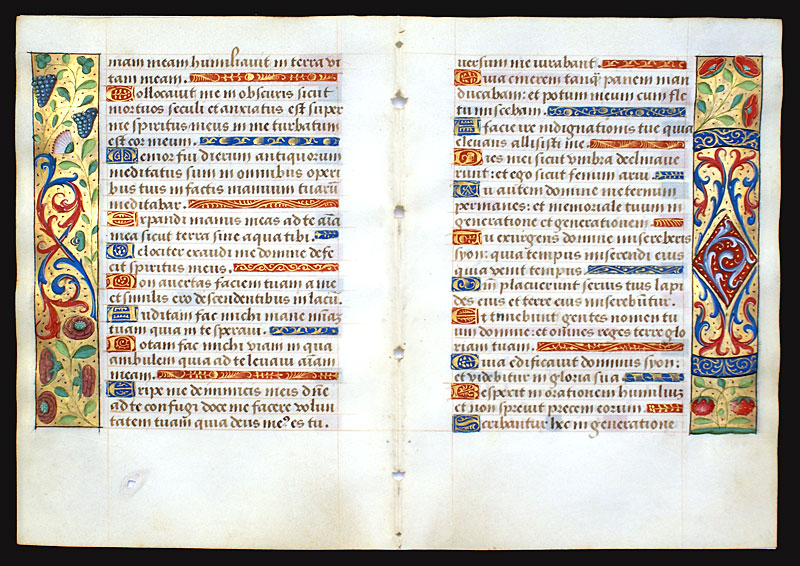 mam meam humiliauit in terra vi
tam meam.
Collocauit me in obscuris sicut
mortuos seculi et anxiatus est super
me spiritus meus in me turbatum
est cor meum.
Memor fui dierum antiquorum
meditatus sum in omnibus operi
bus tuis in factis manuum tuarũ
meditabar.
Expandi manus meas ad te aĩa
mea sicut terra sine aqua tibi.
Velociter exaudi me domine defe
cit spiritus meus.
Non auertas faciem tuam a me
et similis ero descendentibus in lacũ.
Auditam fac michi mane miãz
tuam quia in te speraui.
Notam fac michi viam in qua
ambulem quia ad te leuaui aĩam
meam.
Eripe me de inimicis meis dñe
ad te confugi doce me facere volun
tatem tuam quia deus meꝰ es tu.
uersum me iurabant.
Quia cinerem tanqʒ panem man
ducabam: et potum meum cum fle
tu miscebam.
A facie ire indignationis tue quia
eleuans allisisti me.
Dies mei sicut vmbra declinaue
runt: et ego sicut fenum arui.
Tu autem domine in eternum
permanes: et memoriale tuum in
generatione et generationem.
Tu exurgens domine misereberis
syon: quia tempus miserendi eius
quia venit tempus.
Qm̃ placuerunt seruis tuis lapi
des eius et terre eius miserebũtur.
Et timebunt gentes nomen tu
um domine: et omnes reges terre glo
riam tuam.
Quia edificauit dominus syon:
et videbitur in gloria sua.
Respexit in orationem humiliuz
et non spreuit precem eorum.
Scribantur hec in generatione